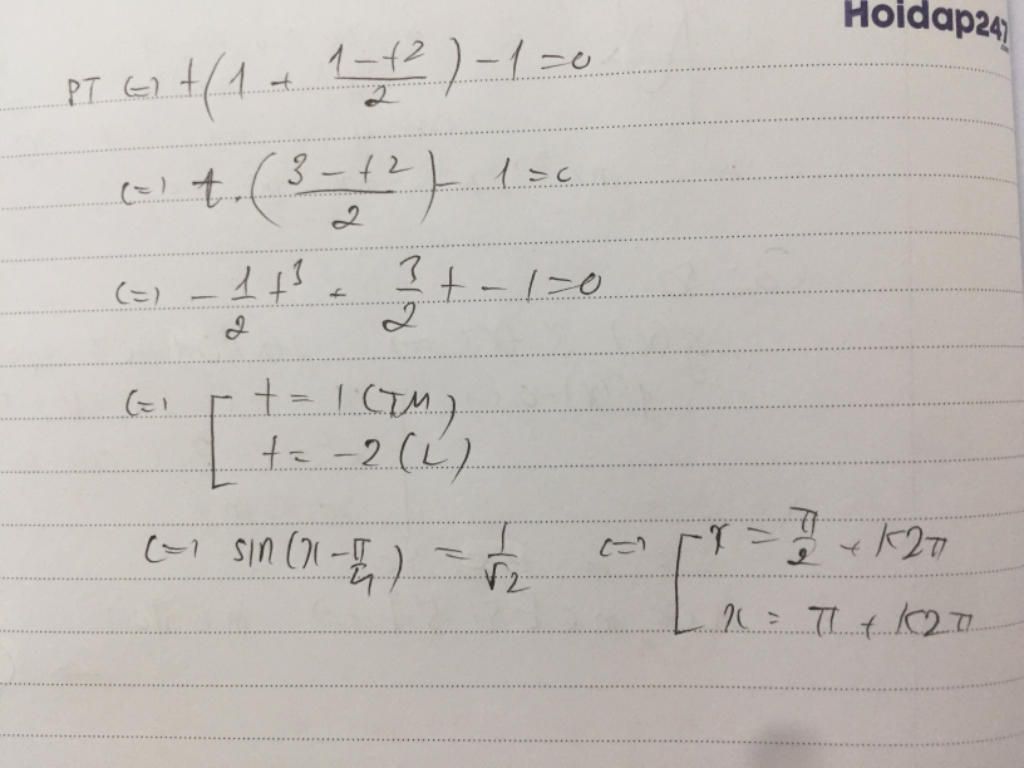 Hoidap247
PT (=) t(1 + (1-t2)/2) - 1 = 0
(=) t.((3-t2)/2) - 1 = 0
(=) -1/2 t3 + 3/2 t - 1 = 0
(=) [ t = 1 (TM)
t = -2 (L)
(=) sin(x - π/4) = 1/√2 (=) [ x = π/2 + K2π
x = π + K2π